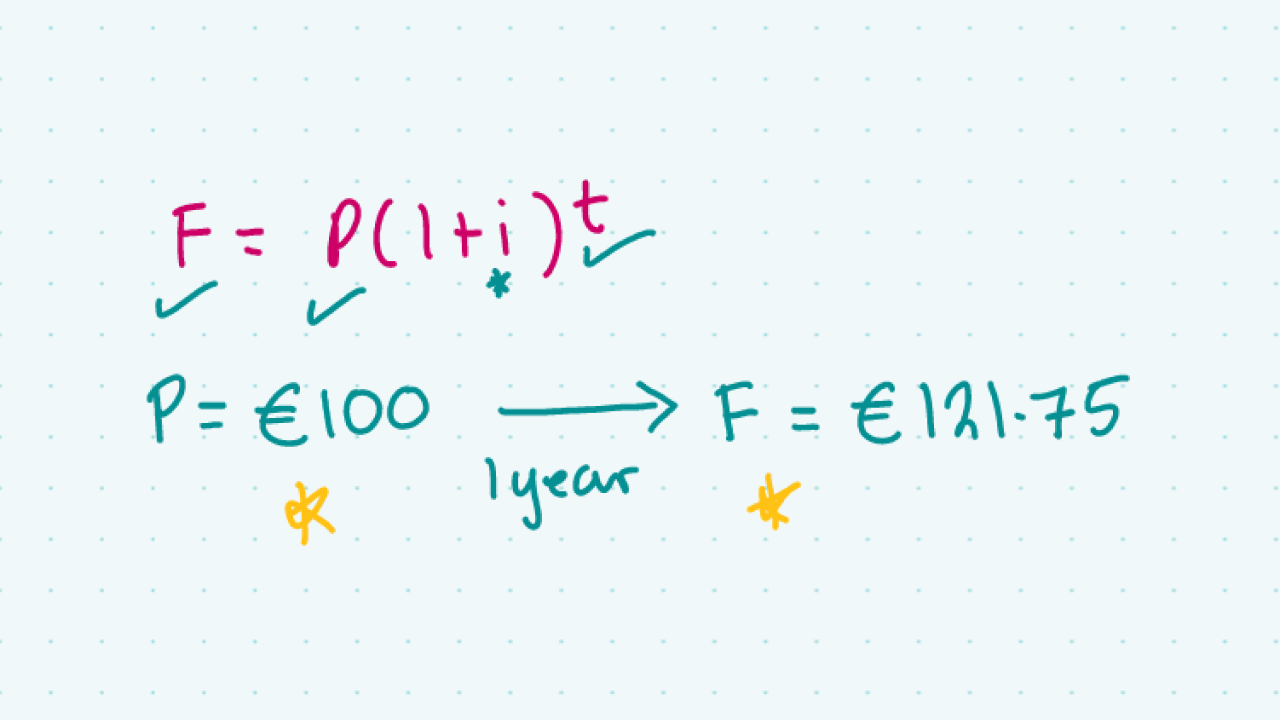 F = P(1+i)^t
P = €100 → F = €121.75
1 year